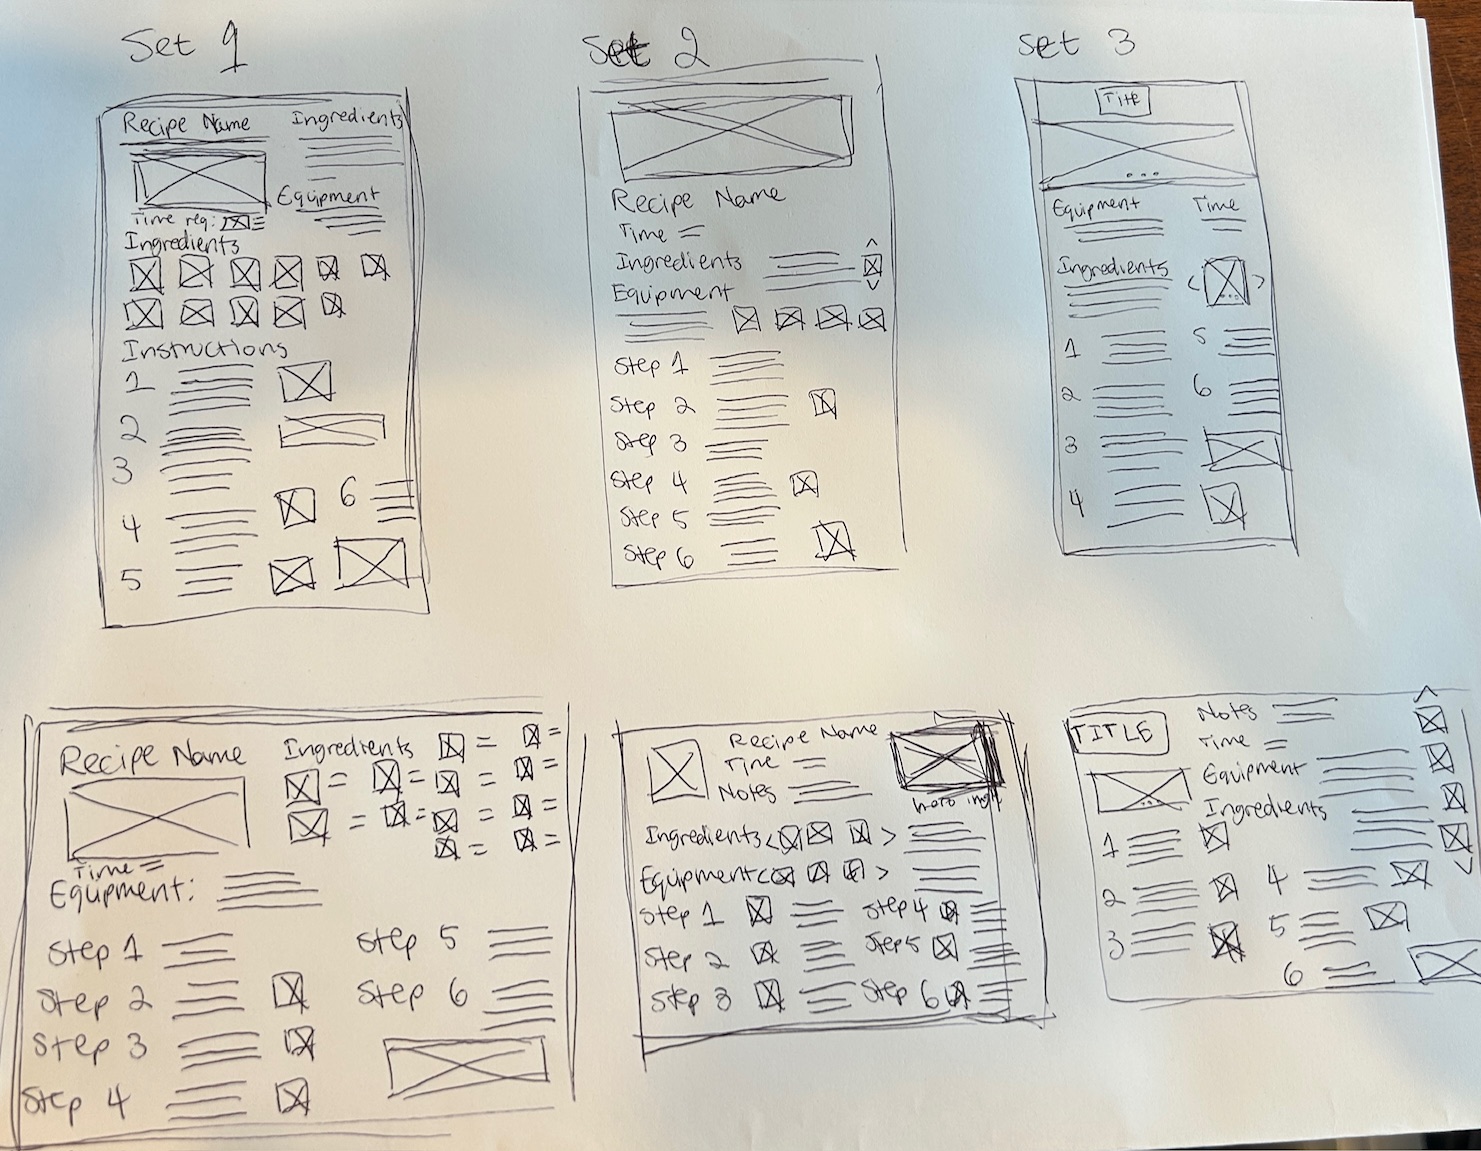 Set 1
Recipe Name
Ingredients
Equipment
Time req:
Ingredients
Instructions
1
2
3
4
5
6
Set 2
Recipe Name
Time
Ingredients
Equipment
Step 1
Step 2
Step 3
Step 4
Step 5
Step 6
Set 3
Title
Equipment
Time
Ingredients
1
2
3
4
5
6
Recipe Name
Time
Equipment:
Ingredients
Step 1
Step 2
Step 3
Step 4
Step 5
Step 6
Recipe Name
Time
Notes
Ingredients
Equipment
Step 1
Step 2
Step 3
Step 4
Step 5
Step 6
TITLE
Notes
Time
Equipment
Ingredients
1
2
3
4
5
6